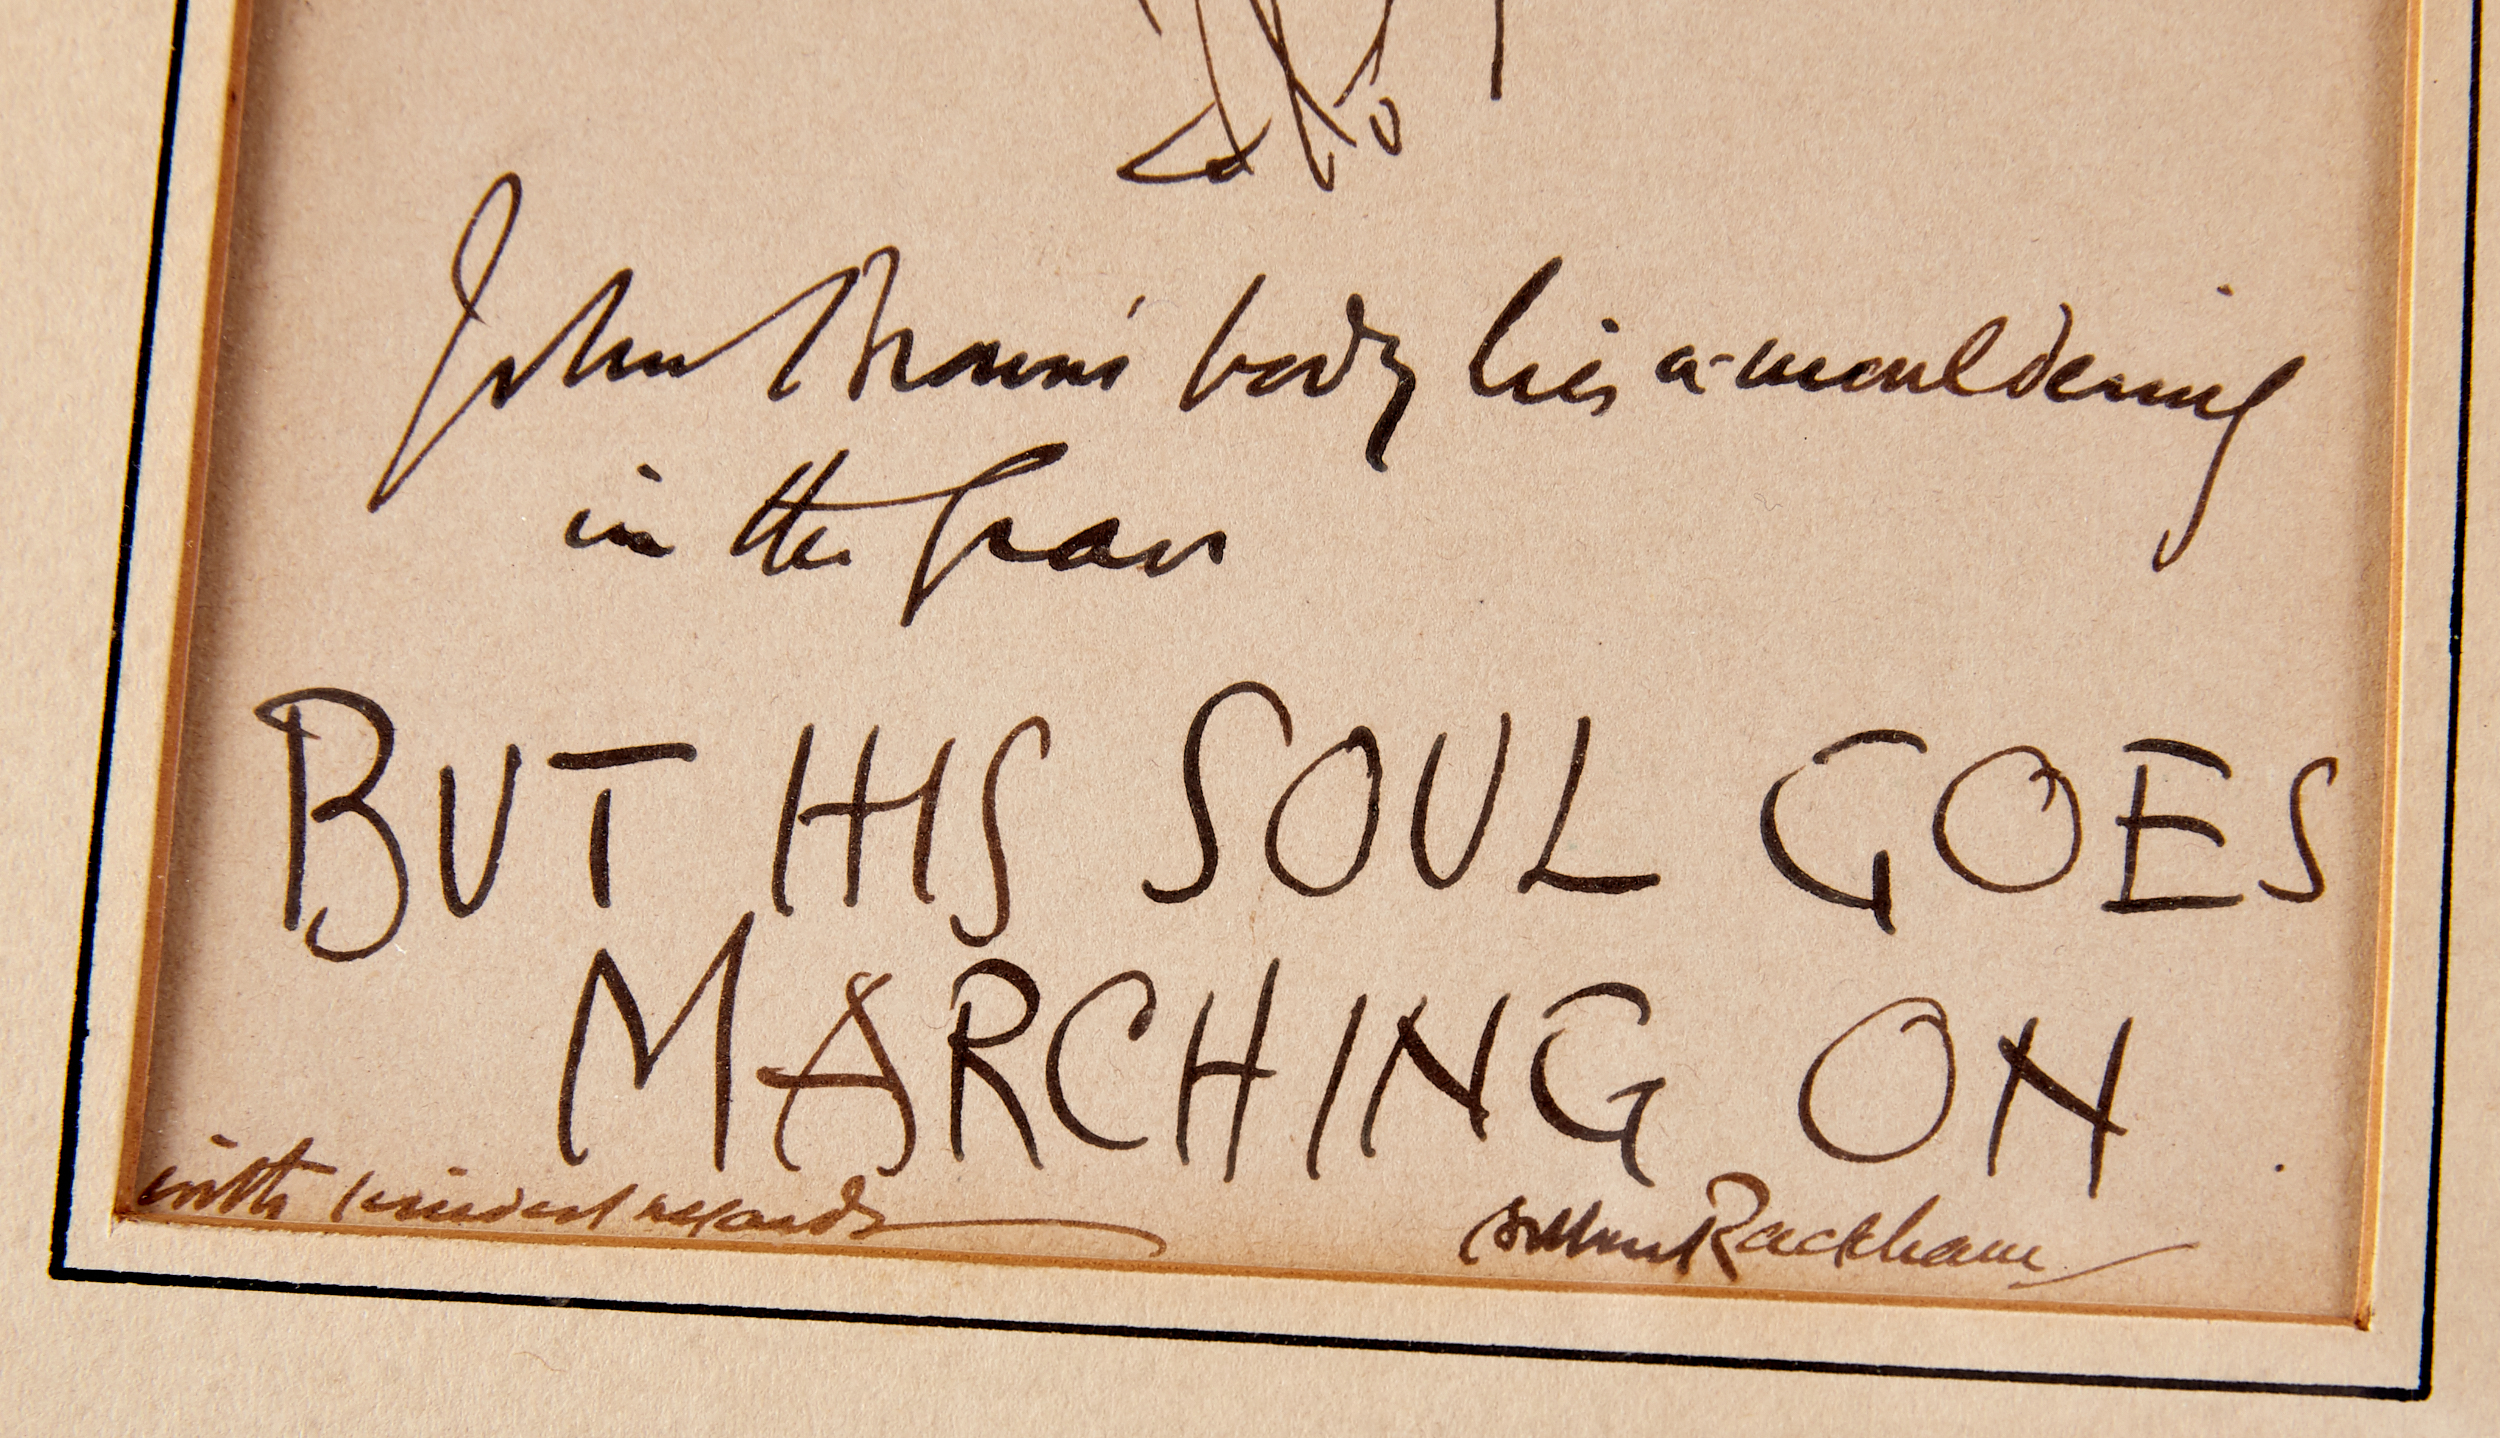 John Brown's body lies a-mouldering
in the grave
BUT HIS SOUL GOES
MARCHING ON
with kindest regards
Arthur Rackham